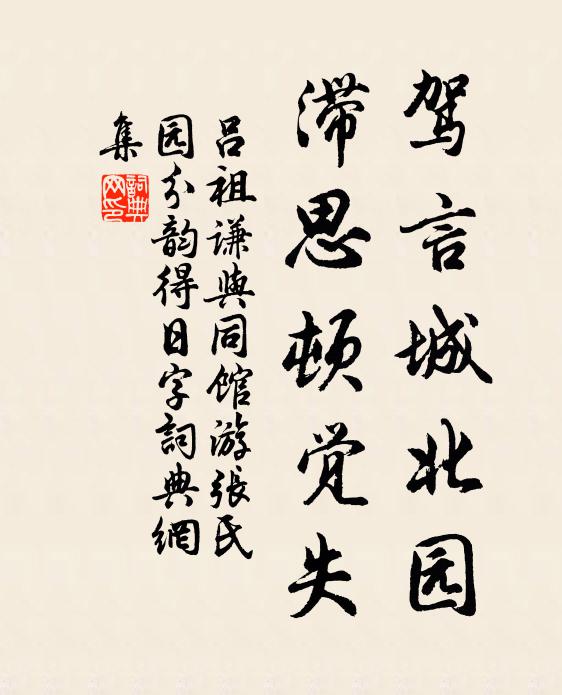 驾言城北园
滞思顿觉失
吕祖谦與同馆游張氏
园分韵得日字詞典網
集
詞典
网印